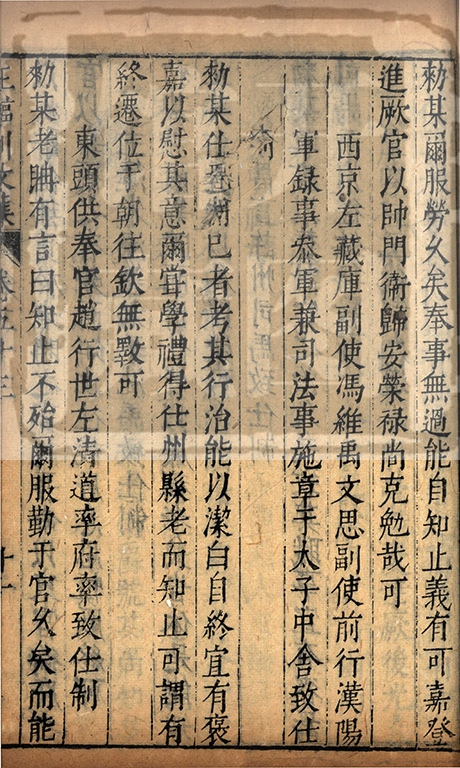 勑某爾服勞久矣奉事無過能自知止義有可嘉登
進厥官以帥門衛歸安榮禄尚克勉哉可
西京左藏庫副使馮維禹文思副使前行漢陽
軍録事叅軍兼司法事施章于太子中舍致仕
制
勑某仕
已者考其行治能以潔白自終宜有褒
嘉以慰其意爾甞學禮得仕州縣老而知止可謂有
終遷位于朝往欽無斁可
東頭供奉官趙行世左清道率府率致仕制
勑某老聃有言曰知止不殆爾服勤于官久矣而能
王臨川文集
卷五十三
十一